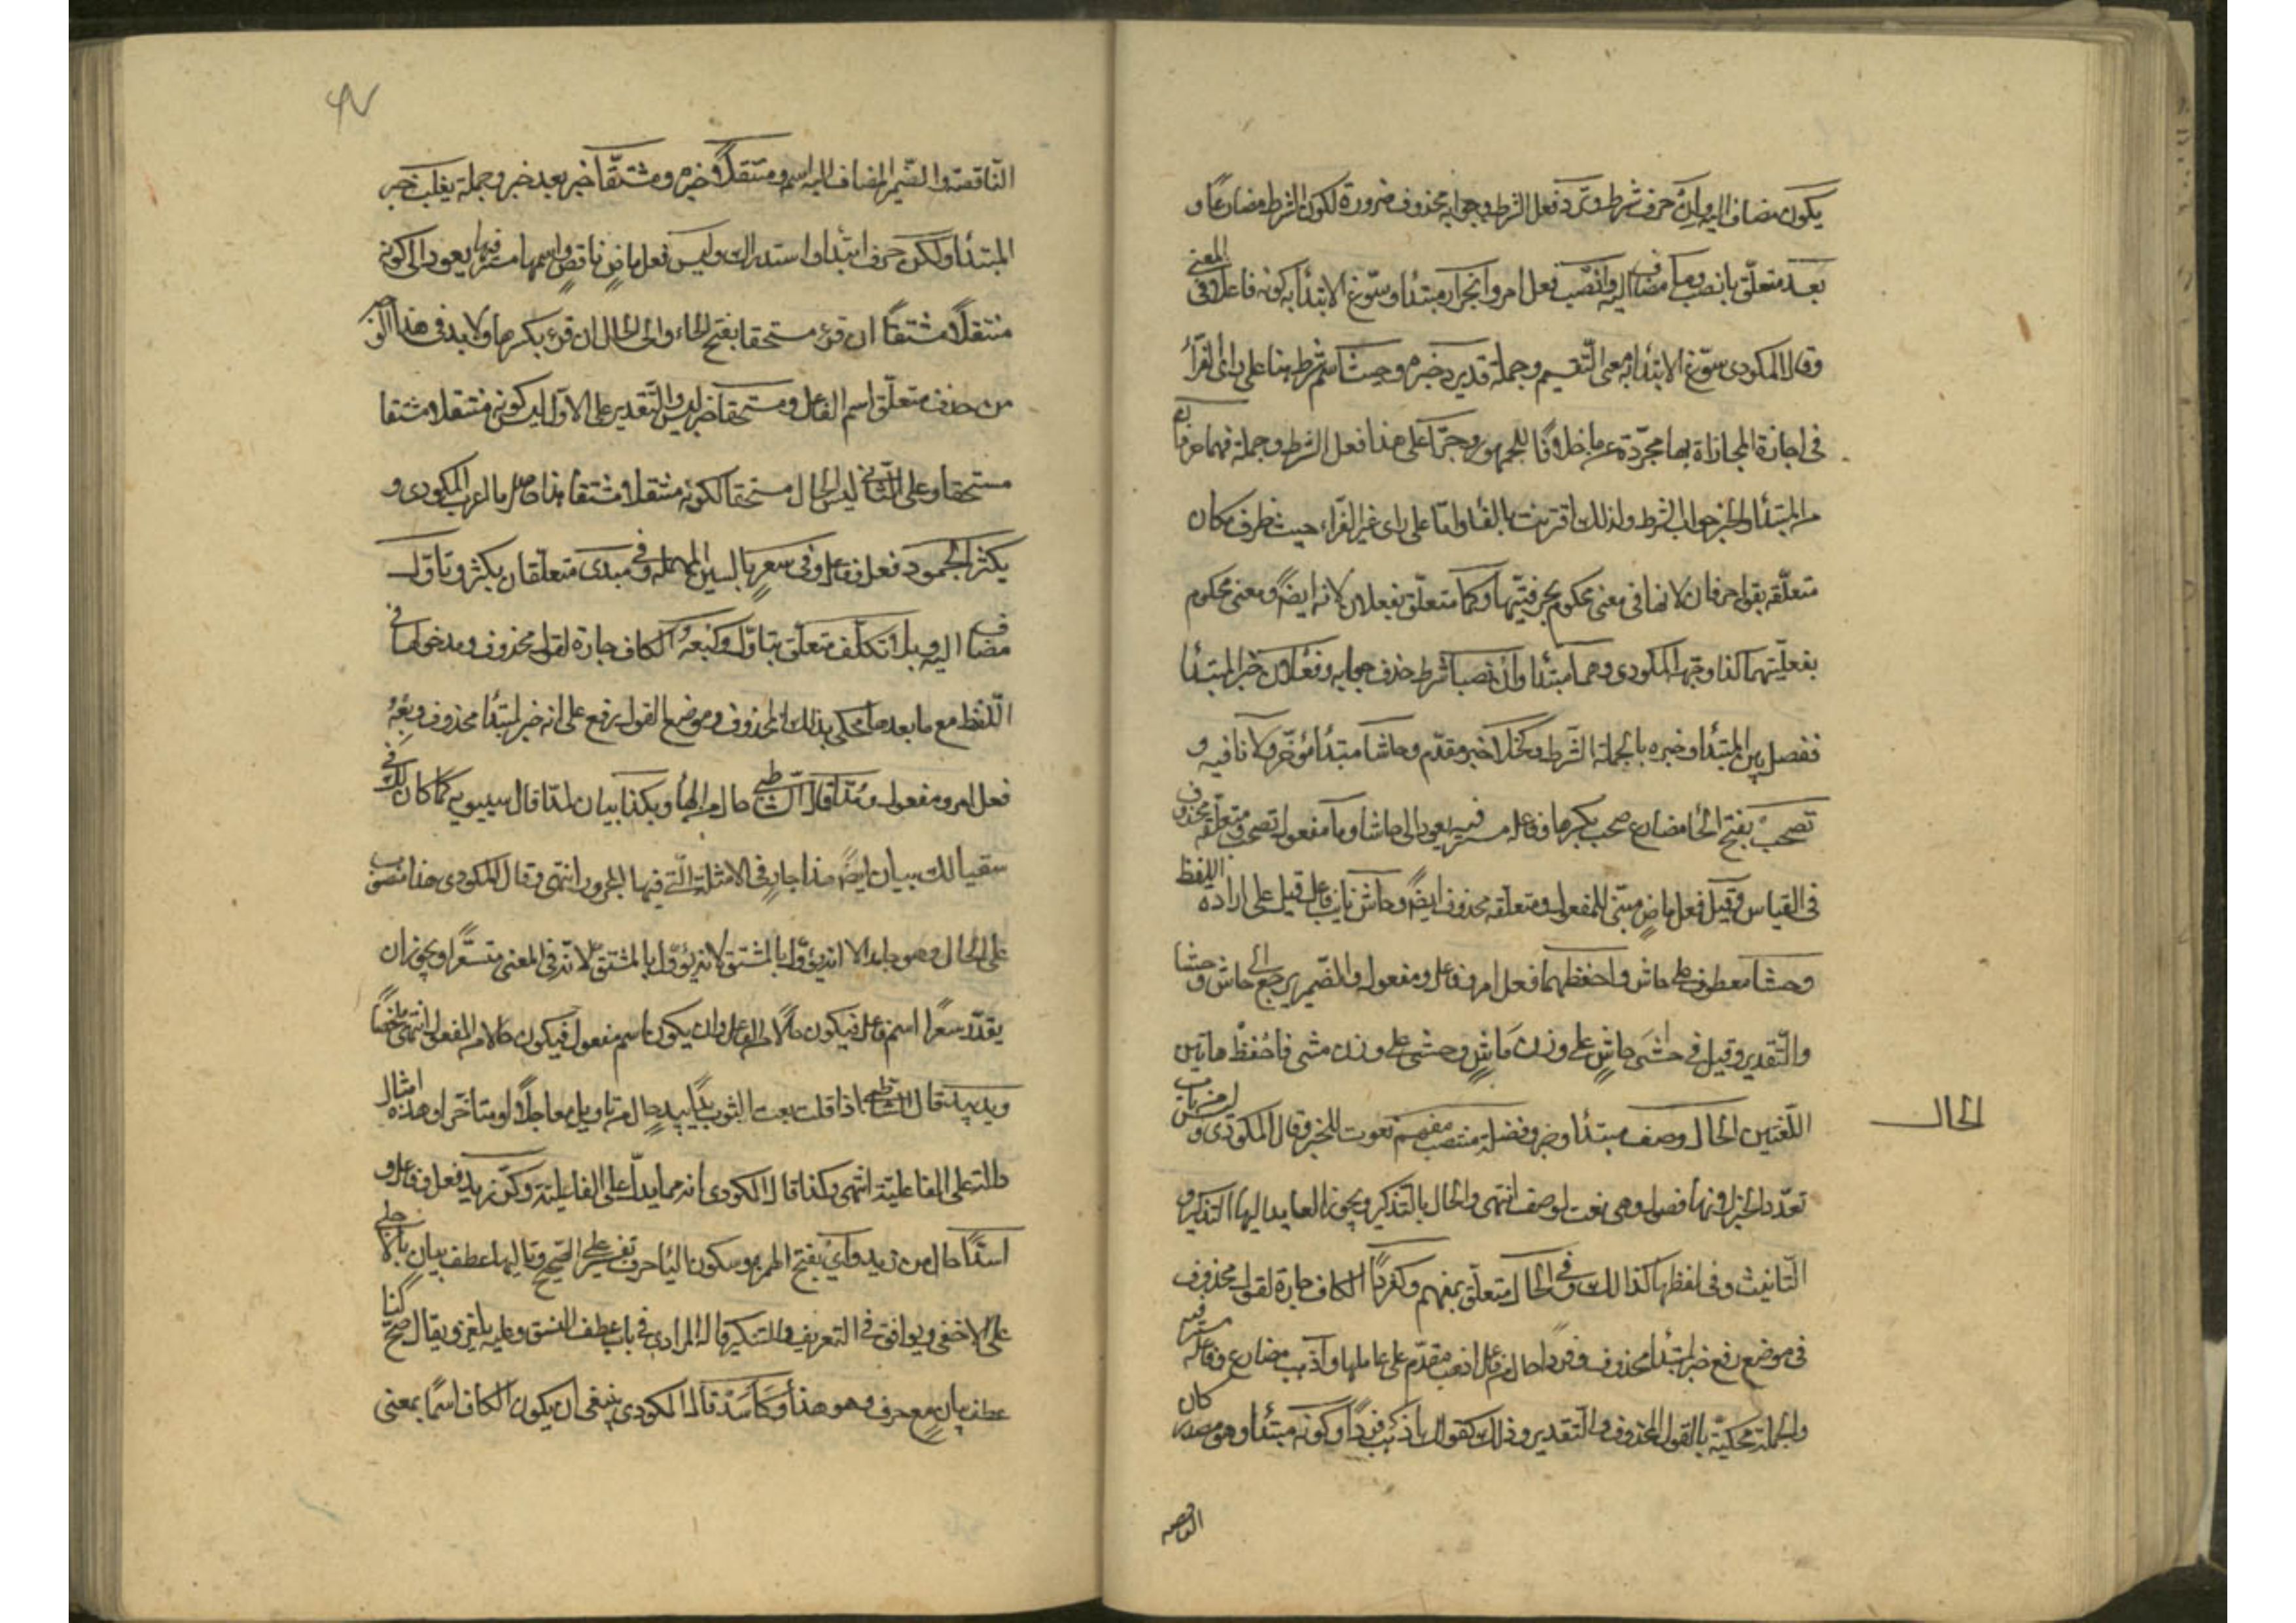 يكون مضاف اليه وان حرف شرط وترد فعل الشرط وجوابه محذوف ضرورة لكون الشرط مضارعا و
بعد متعلق بانصب وما مضاف اليه وانصب فعل امر وانجرار مبتدأ وسوغ الابتدأ به كونه فاعلا في المعنى
وقال المكودى سوغ الابتدأ به معنى التقسيم وجملة قد يرد خبره وحيث اسم شرط بنا على رأى الفرّأ
فى اجازة المجازاة بها مجردة عن ما خلافا للجمهور وجرّا على هذا فعل الشرط وجملة فهما حرفان
من المبتدأ والخبر جواب الشرط ولذلك اقترنت بالفأ واما على راى غير الفراء حيث ظرف مكان
متعلقه بقوله حرفان لانها فى معنى محكوم بحرفيتهما وكما متعلق بفعلان لانه ايضا فى معنى محكوم
بفعليتهما كذا وجهه المكودى وهما مبتدأ وان نصبا شرط حذف جوابه وفعلان خبر المبتدأ
ففصل بين المبتدأ وخبره بالجملة الشرط وكخلا خبر مقدم وحاشا مبتدأ مؤخر ولا نافيه و
تصحب بفتح الحأ مضارع صحب بكسرها وفاعله مستتر فيه يعود الى حاشا وما مفعول تصحب ومتعلقه محذوف
فى القياس وقيل فعل ماض مبنى للمفعول ومتعلقه محذوف ايضا وحاش نايب فاعل قيل على ارادة اللفظ
وحشا معطوف على حاش واحفظهما فعل امر وفاعل ومفعول والضمير يرجع الى حاش وحشا
والتقدير وقيل فى حاشى حاش على وزن ماش وحشى على وزن مشى فاحفظ هاتين
اللغتين الحال وصف مبتدأ وخبر وفضلة منتصب مفهم نعوت للخبر وقال المكودى و
الحال
تعدد الخبر لانها فصول وهى نعت لوصف انتهى والحال بالتذكير ويجوز العايد اليها التذكير و
التانيث وفى لفظها كذا لك وفى الحال متعلق بمفهم وكفردًا الكاف جارة لقول محذوف
فى موضع رفع خبر لمبتدأ محذوف وفردا حال من فاعل اذهب مقدم على عاملها واذهب مضارع وفاعله مستتر فيه
والجملة محكية بالقول المحذوف والتقدير وذلك كقولك اذهب فردًا وكونه مبتدأ وهو مصدر كان
الناقصه
الناقصة والضمير المضاف اليه اسمه ومنتقلًا خبره ومشتقّا خبر بعد خبر وجملة يغلب خبر
المبتدأ ولكن حرف ابتدأ واستدراك وليس فعل ماض ناقص واسمها مستتر فيها يعود الى كونه
منتقلًا مشتقًا ان قرئ مستحقا بفتح الحاء والى الحال ان قرئ بكسرها ولا بد فى هذا الوجه
من حذف متعلق اسم الفاعل ومستحقا خبر ليس والتقدير على الاول ليس كونه منتقلا مشتقا
مستحقا وعلى الثانى ليس الحال مستحقا لكونه منتقلا ومشتقا هذا حاصل ما اعرب المكودى و
يكثر الجمود فعل وفاعل وفى سعر بالسين المهملة وفى مبدى متعلقان بيكثر وتاول
مضاف اليه وبلا تكلف متعلق بتاول وكبعه الكاف جارة لقول محذوف ومدخولها فى
اللفظ مع ما بعدها محكى بذلك المحذوف وموضع القول رفع على انه خبر لمبتدأ محذوف وبعه
فعل امر ومفعول ومدّا قال الشاطبى حال من الهأ وبكذا بيان لمدّا قال سيبويه كما كان لك فى
سقيا لك بيان ايضا هذا جار فى الامثلة التى فيها المجرور انتهى وقال المكودى مدا منصوب
على الحال وهو جامد الا انه يؤوّل بالمشتق لانه يؤول بالمشتق لانه فى المعنى متسعّرا ويجوز ان
يقدر سعرا اسم فاعل فيكون حالا من الفاعل وان يكون اسم مفعول فيكون حالا من المفعول انتهى ملخصًا
ويد بيد قال الشاطبى اذا قلت بعت الثوب يدا بيد حال من تاويل معاجلًا او متأخرا وهذه امثال
دالة على المفاعلية انتهى وكذا قال المكودى انه مما يدل على الفاعلية وكر زيد فعل وفاعل و
اسدًا حال من زيد واى بفتح الهمزة وسكون اليأ حرف تفسير على الصحيح وتاليها عطف بيان بالاجلى
على الاخفى ويوافق فى التعريف والتنكير قاله المرادى فى باب عطف النسق وعليه يلغز ويقال صح كنا
عطف بيان مع حرف وهو هذا وكأسد قال المكودى ينبغى ان يكون الكاف اسمًا بمعنى